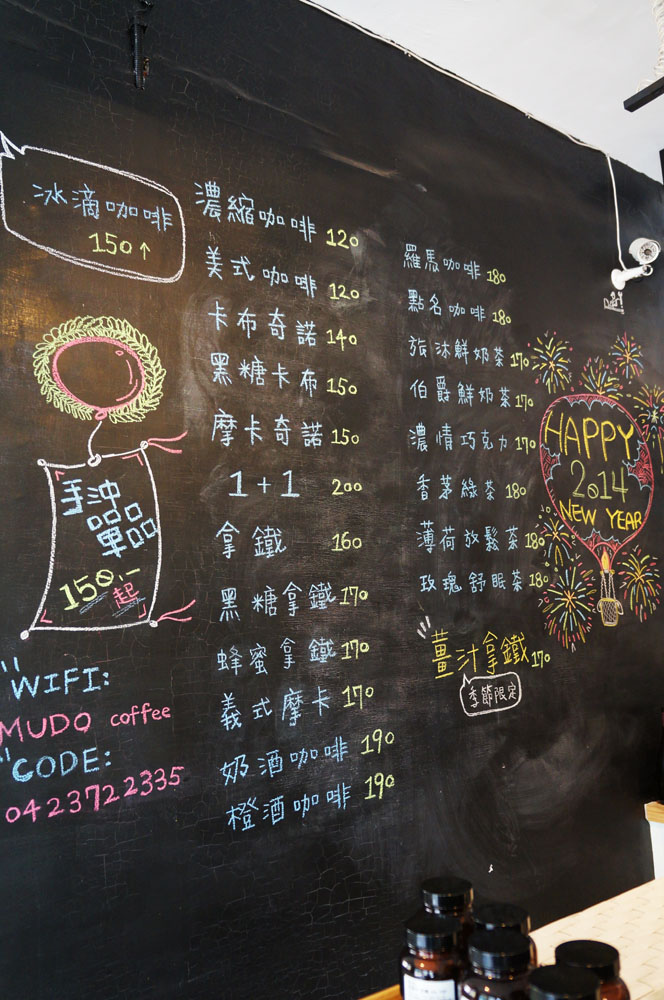 冰滴咖啡
150↑
手沖
單品
150.-
起
WIFI:
MUDO coffee
CODE:
0423722335
濃縮咖啡 120
美式咖啡 120
卡布奇諾 140
黑糖卡布 150
摩卡奇諾 150
1+1 200
拿鐵 160
黑糖拿鐵 170
蜂蜜拿鐵 170
義式摩卡 170
奶酒咖啡 190
橙酒咖啡 190
羅馬咖啡 180
點名咖啡 180
張沐鮮奶茶 170
伯爵鮮奶茶 170
濃情巧克力 170
香茅綠茶 180
薄荷放鬆茶 180
玫瑰舒眠茶 180
薑汁拿鐵 170
季節限定
HAPPY
2014
NEW YEAR